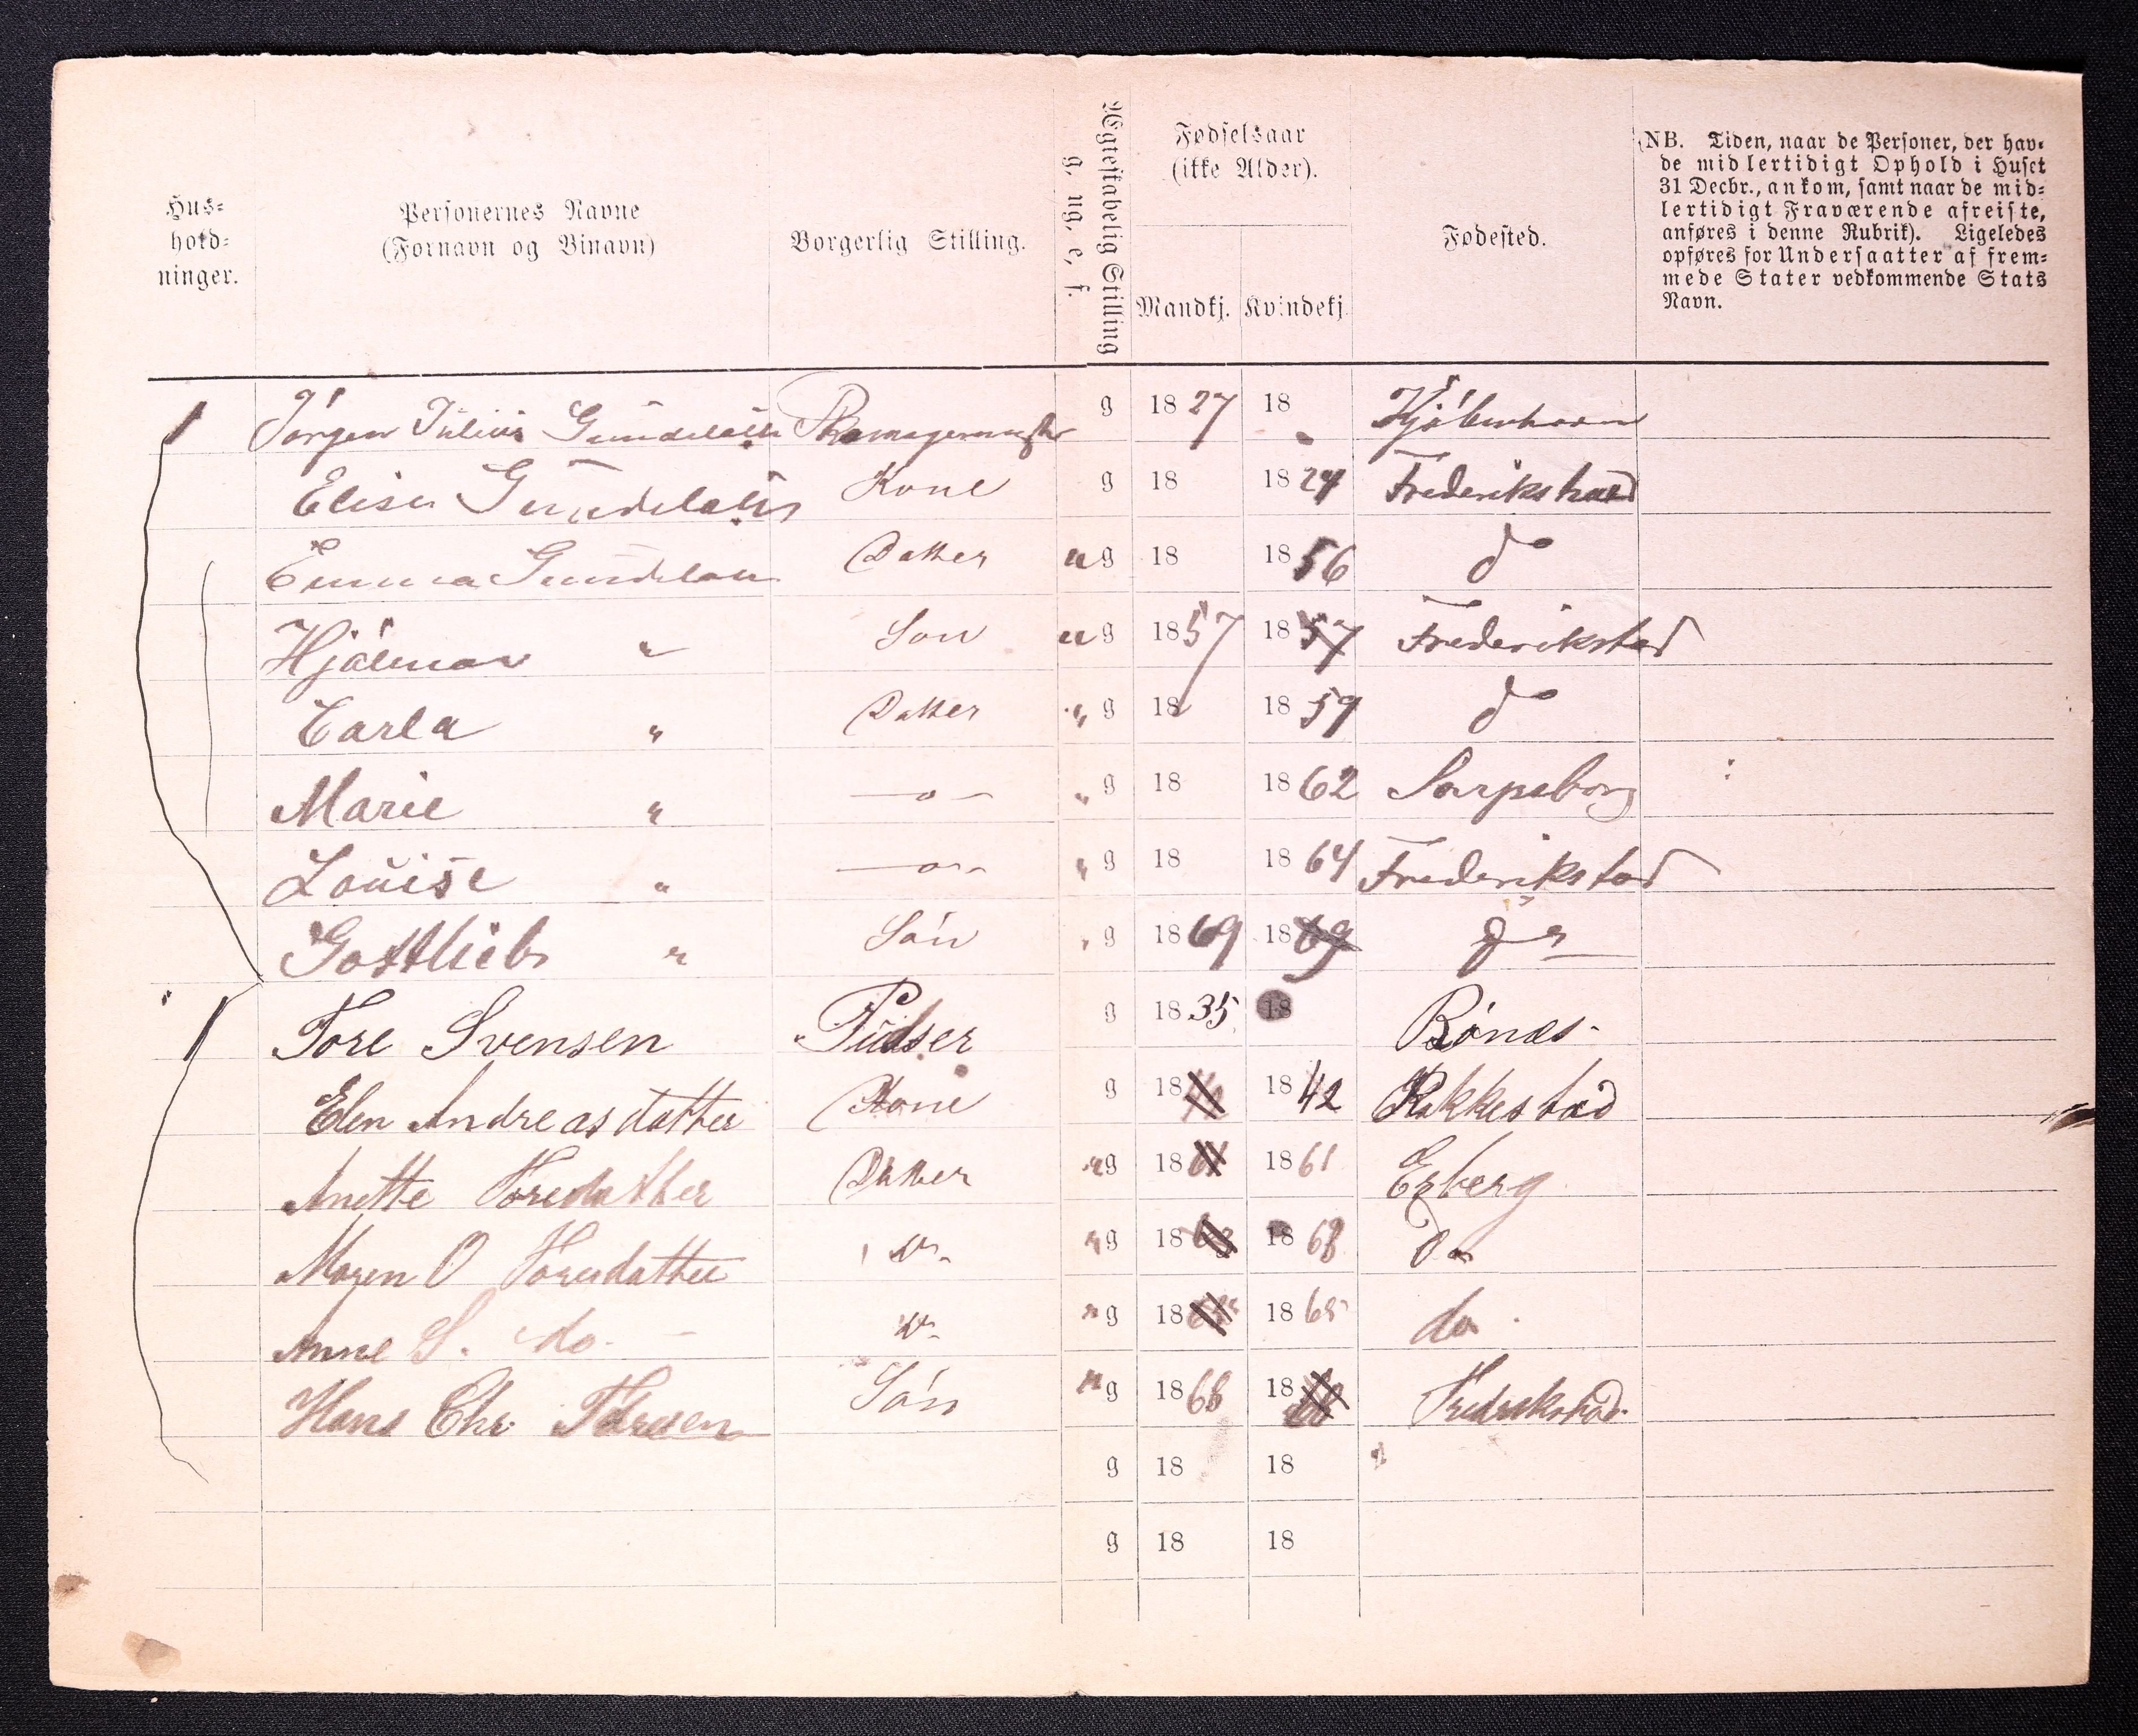 Hus-
hold-
ninger.
Personernes Navne
(Fornavn og Binavn)
Borgerlig Stilling.
Ægteskabelig Stilling
g, ug, e, f.
Fødselsaar
(ikke Alder).
Mandkj. Kvindekj.
Fødested.
NB. Tiden, naar de Personer, der hav-
de midlertidigt Ophold i Huset
31 Decbr., ankom, samt naar de mid-
lertidigt Fraværende afreiste,
anføres i denne Rubrik). Ligeledes
opføres for Undersaatter af frem-
mede Stater vedkommende Stats
Navn.
1 Jörgen Julius Gundelach g 1827 18 Kjöbenhavn
Elise Gundelach Kone g 18 1824 Frederikstad
Emma Gundelau Datter ug 18 1856 do
Hjalmar " Son ug 1857 1857 Frederikstad
Carla " Datter " g 18 1859 do
Marie " —o— " g 18 1862 Sarpsborg
Louise " —o— " g 18 1864 Frederikstad
Gottlieb " Sön " g 1869 1869 do
1 Tore Svensen Pudser g 1835 18
Elen Andreasdatter Kone g 18 1842 Rakkestad
Anette Toredatter Datter ug 1861 1861
Maren O Toredatter do ug 1863 1863 do
Anne S. do - do ug 1865 1865 do.
Hans Chr. Toresen Sön ug 1868 1868 Fredrikstad
g 18 18
g 18 18